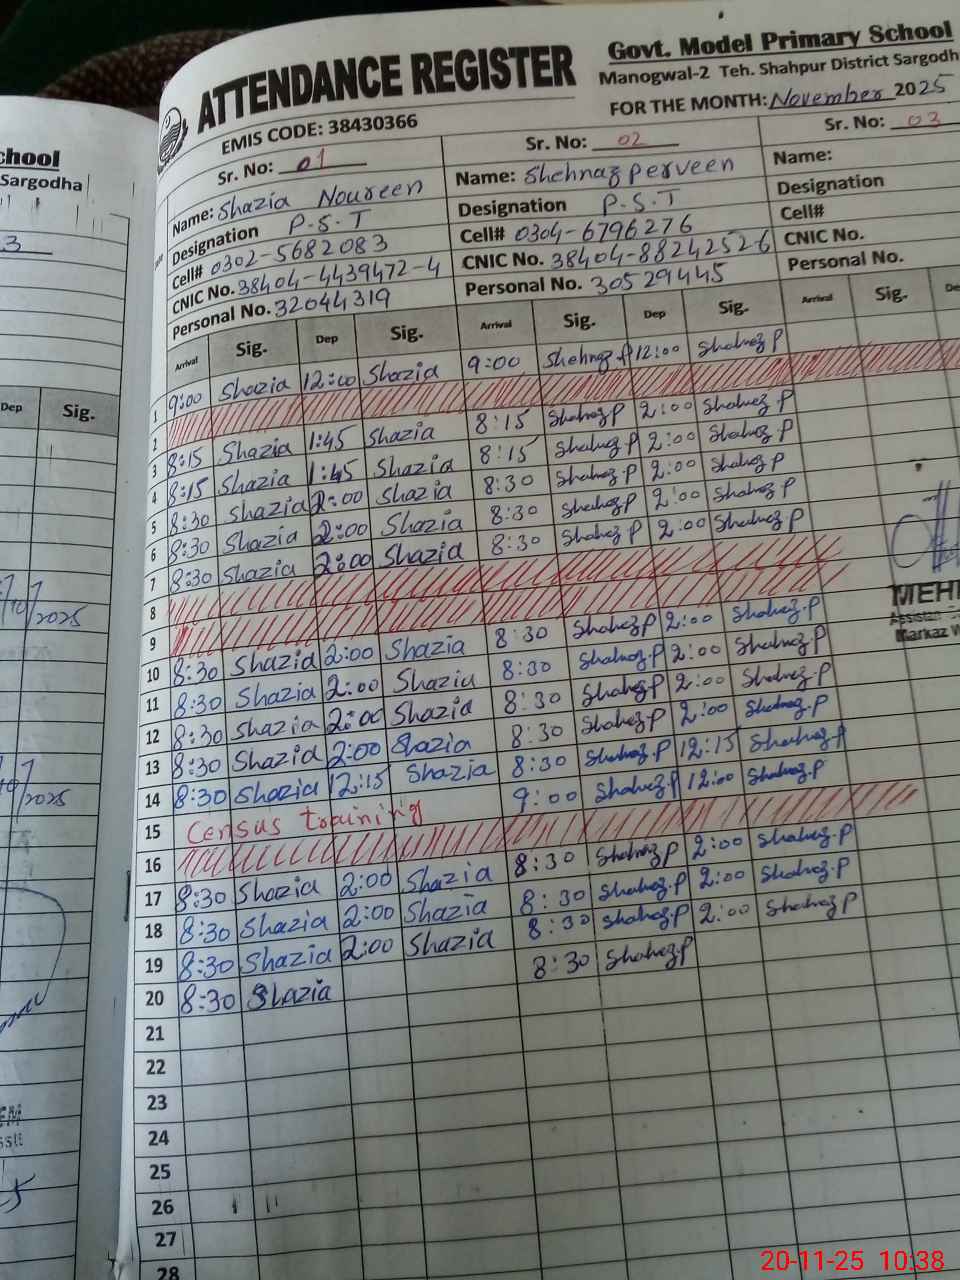 chool
Sargodha
3
Dep Sig.
10/2025
10/2025
ATTENDANCE REGISTER
Govt. Model Primary School
Manogwal-2 Teh. Shahpur District Sargodh
EMIS CODE: 38430366
FOR THE MONTH: November 2025
Sr. No: 01 Sr. No: 02 Sr. No: 03
Name: Shazia Noureen Name: Shehnaz perveen Name:
Designation P.S.T Designation P.S.T Designation
Cell# 0302-5682083 Cell# 0304-6796276 Cell#
CNIC No. 38404-4439472-4 CNIC No. 38404-8824252-6 CNIC No.
Personal No. 32044319 Personal No. 30529445 Personal No.
Arrival Sig. Dep Sig. Arrival Sig. Dep Sig. Arrival Sig. De
1 9:00 Shazia 12:00 Shazia 9:00 Shehnaz.P 12:00 Shahnaz P
2
3 8:15 Shazia 1:45 Shazia 8:15 Shahnaz P 2:00 Shahnaz P
4 8:15 Shazia 1:45 Shazia 8:15 Shahnaz.P 2:00 Shahnaz P
5 8:30 Shazia 2:00 Shazia 8:30 Shahnaz.P 2:00 Shahnaz P
6 8:30 Shazia 2:00 Shazia 8:30 Shahnaz.P 2:00 Shahnaz P
7 8:30 Shazia 2:00 Shazia 8:30 Shahnaz.P 2:00 Shahnaz P
8
9
10 8:30 Shazia 2:00 Shazia 8:30 Shahnaz P 2:00 Shahnaz.P
11 8:30 Shazia 2:00 Shazia 8:30 Shahnaz.P 2:00 Shahnaz.P
12 8:30 Shazia 2:00 Shazia 8:30 Shahnaz.P 2:00 Shahnaz.P
13 8:30 Shazia 2:00 Shazia 8:30 Shahnaz.P 2:00 Shahnaz.P
14 8:30 Shazia 12:15 Shazia 8:30 Shahnaz.P 12:15 Shahnaz.P
15 Census training 9:00 Shahnaz.P 12:00 Shahnaz.P
16
17 8:30 Shazia 2:00 Shazia 8:30 Shahnaz P 2:00 Shahnaz.P
18 8:30 Shazia 2:00 Shazia 8:30 Shahnaz.P 2:00 Shahnaz.P
19 8:30 Shazia 2:00 Shazia 8:30 Shahnaz.P 2:00 Shahnaz.P
20 8:30 Shazia 8:30 Shahnaz P
21
22
23
24
25
26
27
28
MEH
Markaz
20-11-25 10:38